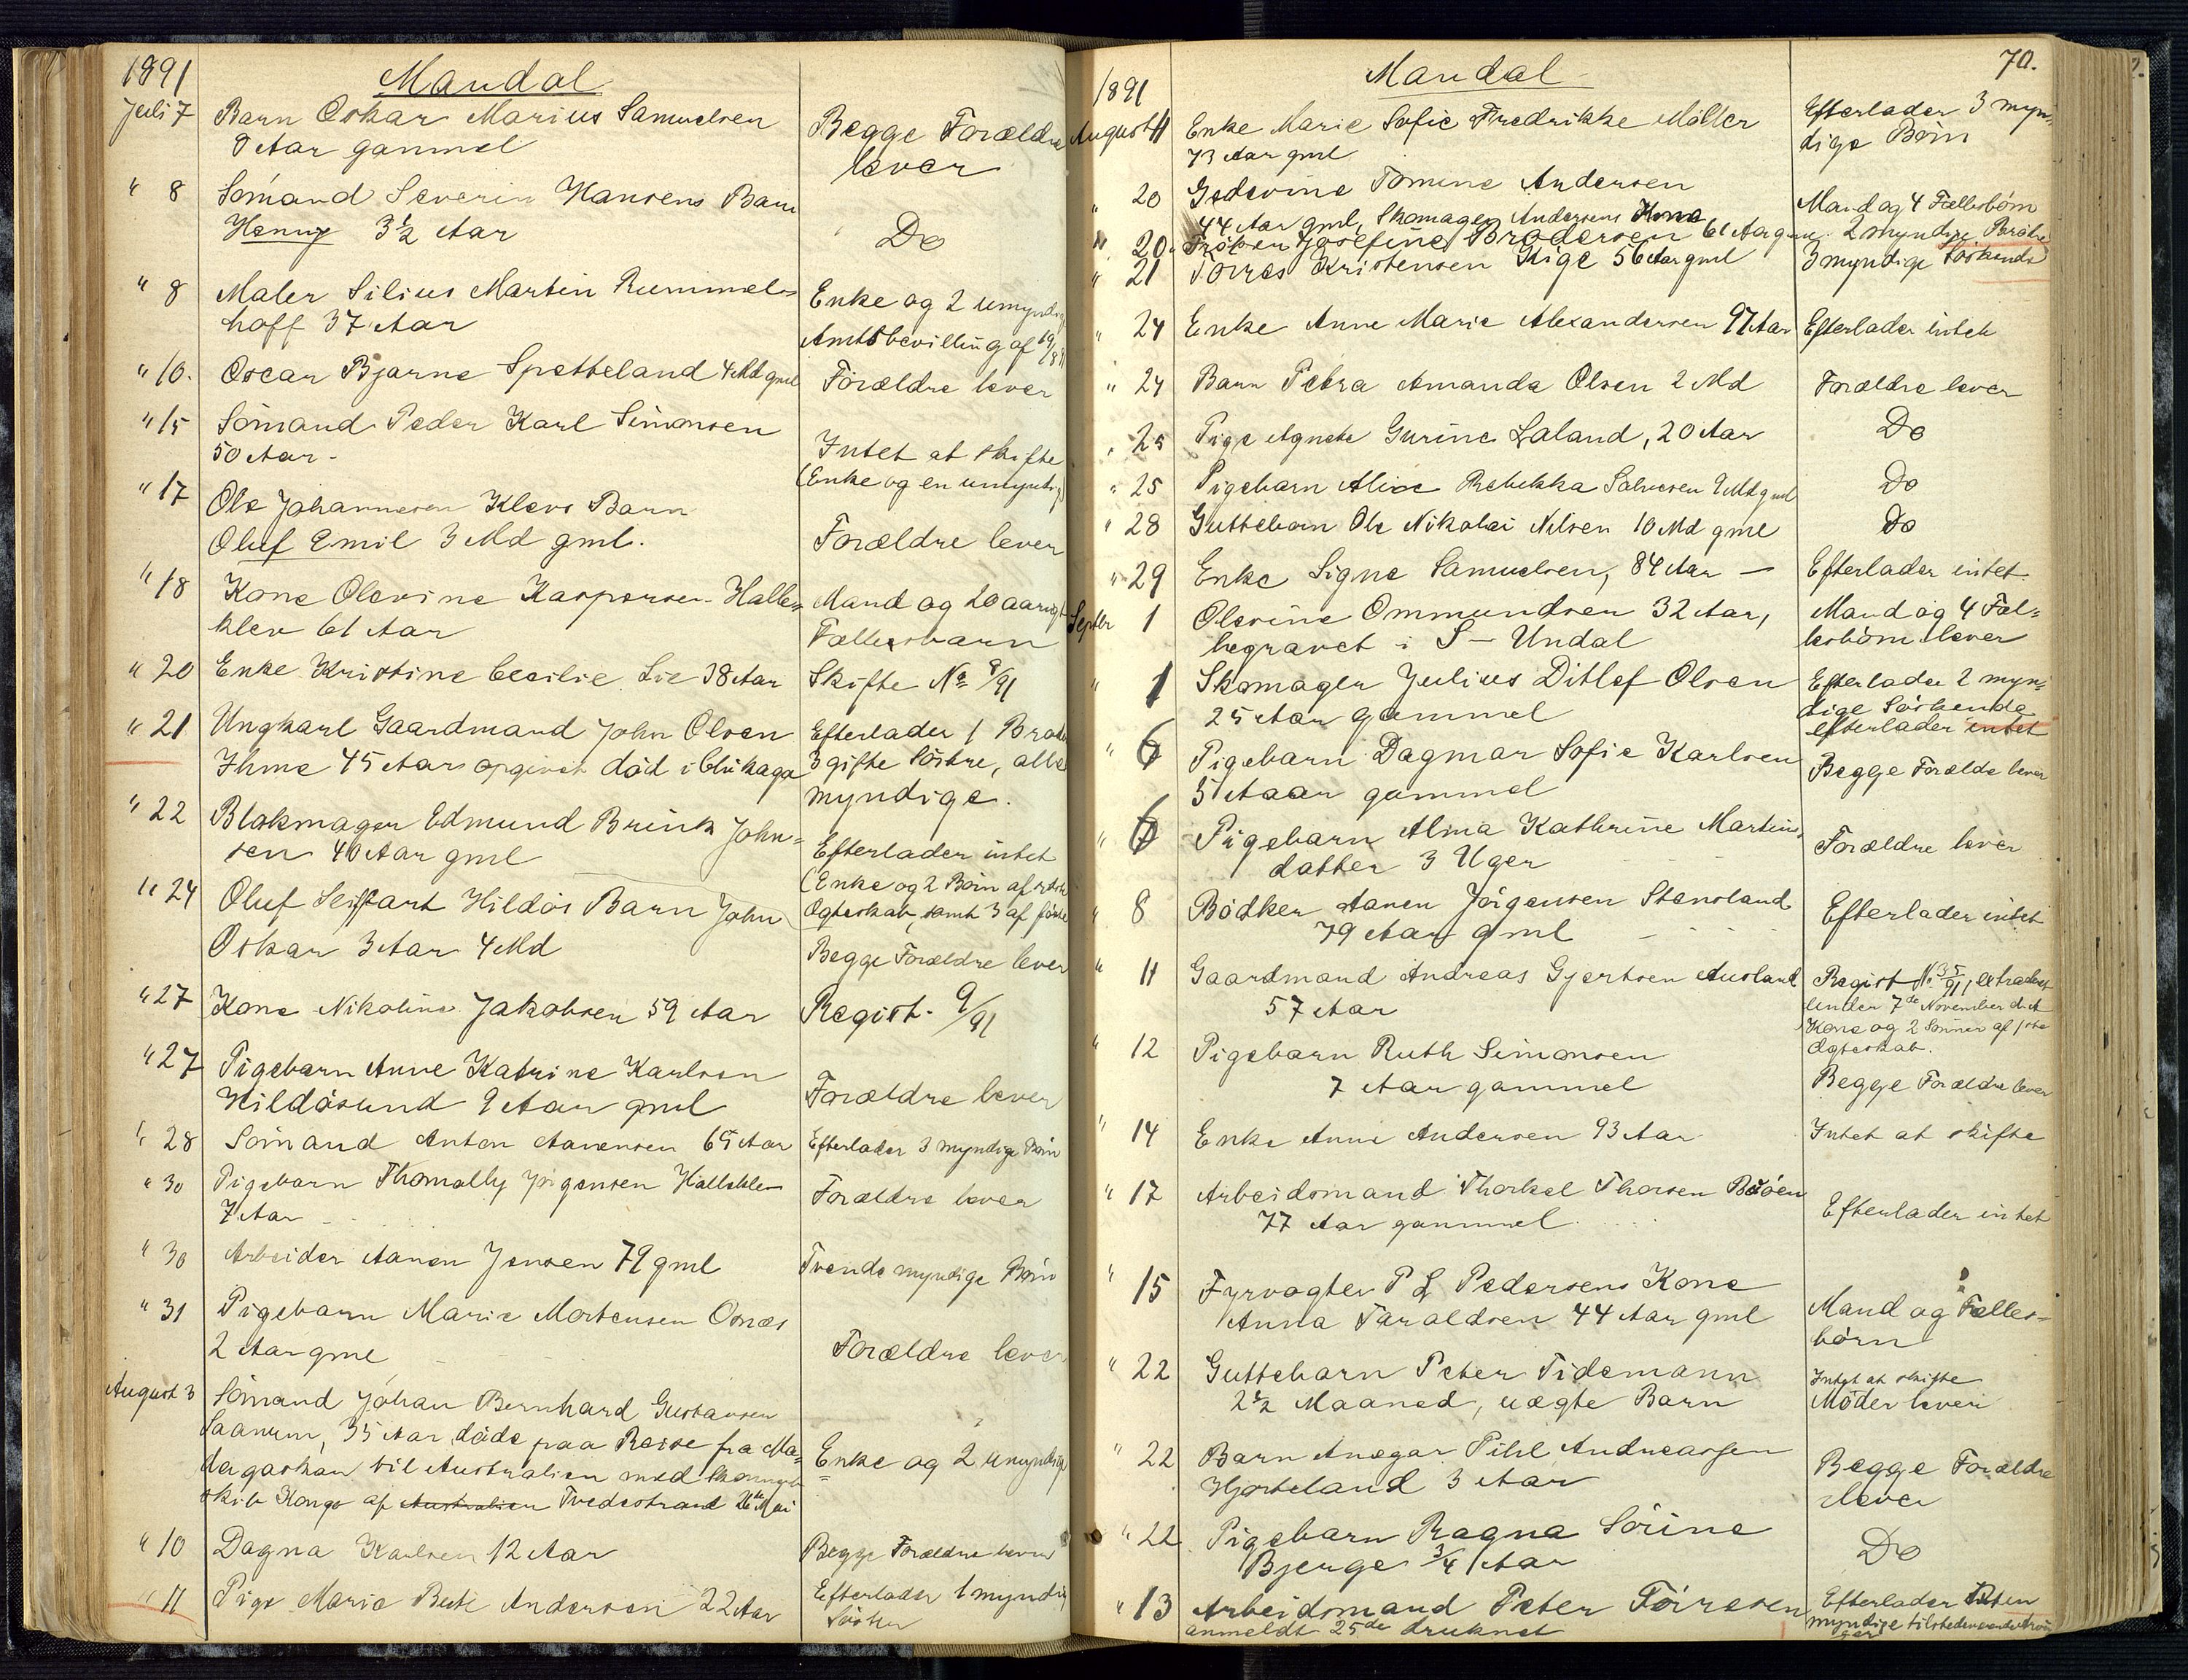 1891
Mandal
Juli 7 Barn Oskar Marius Samuelsen Begge Forældre
Aar gammel lever
" 8 Sömand Severin Hansens Barn
Henny 3½ Aar Do
" 8 Maler Silius Martin Rummel= Enke og 2 umyndige
hoff 37 Aar Amtsbevilling af
" 10. Oscar Bjarne Spetteland 4 Md gml Forældre lever
" 15 Sömand Peder Karl Simonsen Intet at skifte
50 Aar - (Enke og en umyndig)
" 17 Ole Johannesen Klevs Barn
Oluf Emil 3 Md gml. Forældre lever
" 18 Kone Olevine Kaspersen Halle= Mand og 20 aarigt
klev 61 Aar Fællesbarn
" 20 Enke Kristine Cecilie Lie 38 Aar Skifte No 8/91
" 21 Ungkarl Gaardmand John Olsen Efterlader 1 Broder
Ihme 45 Aar opgivet död i Chikago 3 gifte Söstre, alle
myndige.
" 22 Blokmager Edmund Brink John=
sen 40 Aar gml Efterlader intet
(Enke og 2 Börn af sidste
Ægteskab, samt 3 af förste
" 24 Oluf Hildös Barn John
Oskar 3 Aar 4 Md Begge Forældre lever
" 27 Kone Nikoline Jakobsen 59 Aar Regist. 9/91
" 27 Pigebarn Anne Katrine Karlsen
Hildösund 9 Aar gml Forældre lever
" 28 Sömand Anton Aanensen 65 Aar Efterlader 3 myndige Börn
" 30 Pigebarn Thomally Jörgensen Halleklev Forældre lever
7 Aar
" 30 Arbeider Aanen Jensen 79 gml Tvende myndige Börn
" 31 Pigebarn Marie Mortensen Osnæs
2 Aar gml Forældre lever
August 3 Sömand Johan Bernhard Gustavsen
Saanum, 35 Aar döde paa Reise fra Ma=
dagaskar til Australien med Enke og 2 umyndige
skib Kongo af Australien Tvedestrand 26de Mai
" 10 Dagna Karlsen 12 Aar Begge Forældre lever
" 11 Pige Maria Berte Andersen 22 Aar Efterlader 1 myndig
Söster
70.
1891
Mandal
August 11 Enke Marie Sofie Fredrikke Möller Efterlader 3 myn=
73 Aar gml dige Börn
" 20 Gedevine Tomine Andersen Mand og 4 Fællesbörn
44 Aar gml, Skomager Andersens Kone
" 20 Fröken Josefine Brodersen 61 Aar gml. 2 myndige
" 21 Torres Kristensen Kige 56 Aar gml 3 myndige Söskende
" 24 Enke Anne Marie Alexandersen 97 Aar Efterlader intet
" 24 Barn Petra Amanda Olsen 2 Md Forældre lever
" 25 Pige Agnete Gurine Laland, 20 Aar Do
" 25 Pigebarn Alice Rebekka Salvesen 2 Md gml Do
" 28 Guttebarn Ole Nikolai Nilsen 10 Md gml Do
" 29 Enke Signe Samuelsen, 84 Aar — Efterlader intet
Septbr 1 Olevine Ommundsen 32 Aar, Mand og 4 Fæl=
begravet i S - Undal lesbörn lever
" 1 Skomager Julius Ditlef Olsen Efterlader 2 myn=
25 Aar gammel dige Söskende
efterlader intet
" 6 Pigebarn Dagmar Sofie Karlsen Begge Forældre lever
5 Aaar gammel
" 6 Pigebarn Alma Kathrine Martins Forældre lever
datter 3 Uger
" 8 Bödker Aanen Jörgensen Stensland Efterlader intet
79 Aar gml
" 11 Gaardmand Andreas Gjertsen Ausland Regist No 35/91, extraderet
57 Aar under 7de November d.A.
Kone og 2 Sönner af 1ste
Ægteskab.
" 12 Pigebarn Ruth Simonsen
7 Aar gammel Begge Forældre lever
" 14 Enke Anne Andersen 93 Aar Intet at skifte
" 17 Arbeidsmand Thorkel Thorsen
77 Aar gammel Efterlader intet
" 15 Fyrvogter P L Pedersens Kone
Anna Taraldsen 44 Aar gml Mand og Fælles=
börn
" 22 Guttebarn Peter Tidemann Intet at skifte
2½ Maaned, uægte Barn Moder lever
" 22 Barn Ansgar Pihl Andreassen Begge Forældre
Hjorteland 3 Aar lever
" 22 Pigebarn Ragna Sörine
Bjerge ¾ Aar Do
" 13 Arbeidsmand Peter Törresen Efterlader
anmeldt 25de druknet myndige tilstedeværende